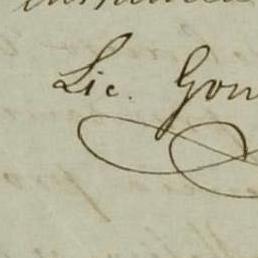 Lic. Gon